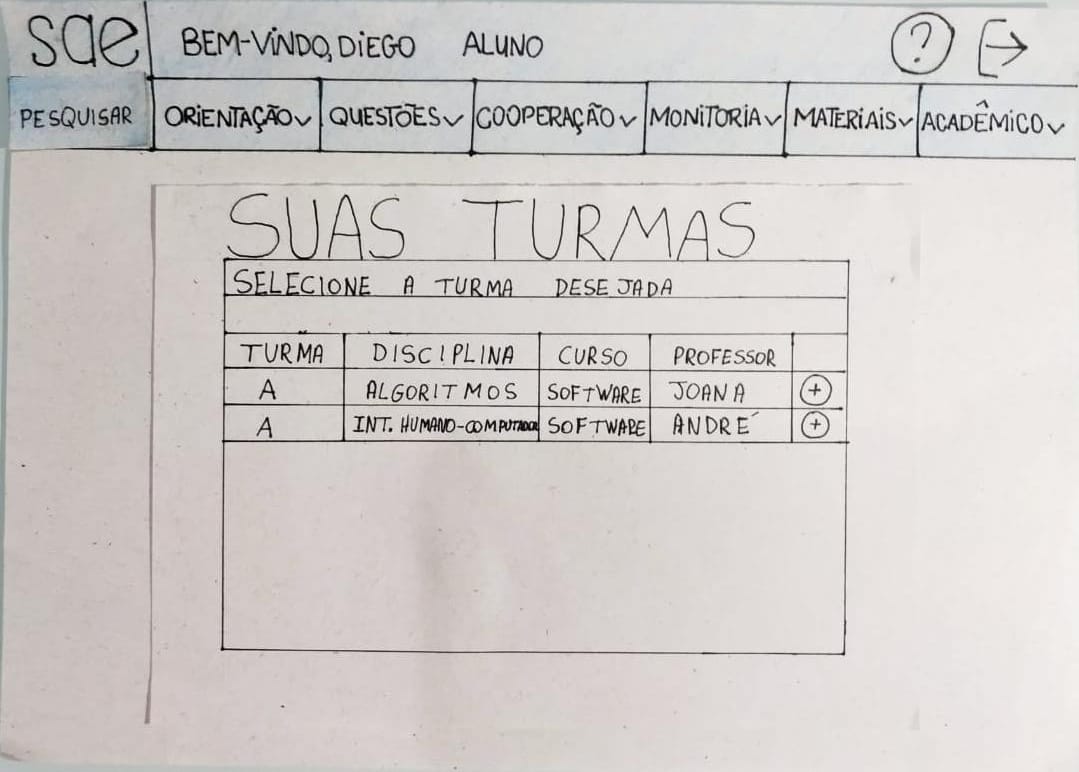 sae BEM-VINDO, DIEGO ALUNO ?
PESQUISAR ORIENTAÇÃO QUESTÕES COOPERAÇÃO MONITORIA MATERIAIS ACADÊMICO
SUAS TURMAS
SELECIONE A TURMA DESEJADA
TURMA DISCIPLINA CURSO PROFESSOR
A ALGORITMOS SOFTWARE JOANA +
A INT. HUMANO-COMPUTADOR SOFTWARE ANDRÉ +